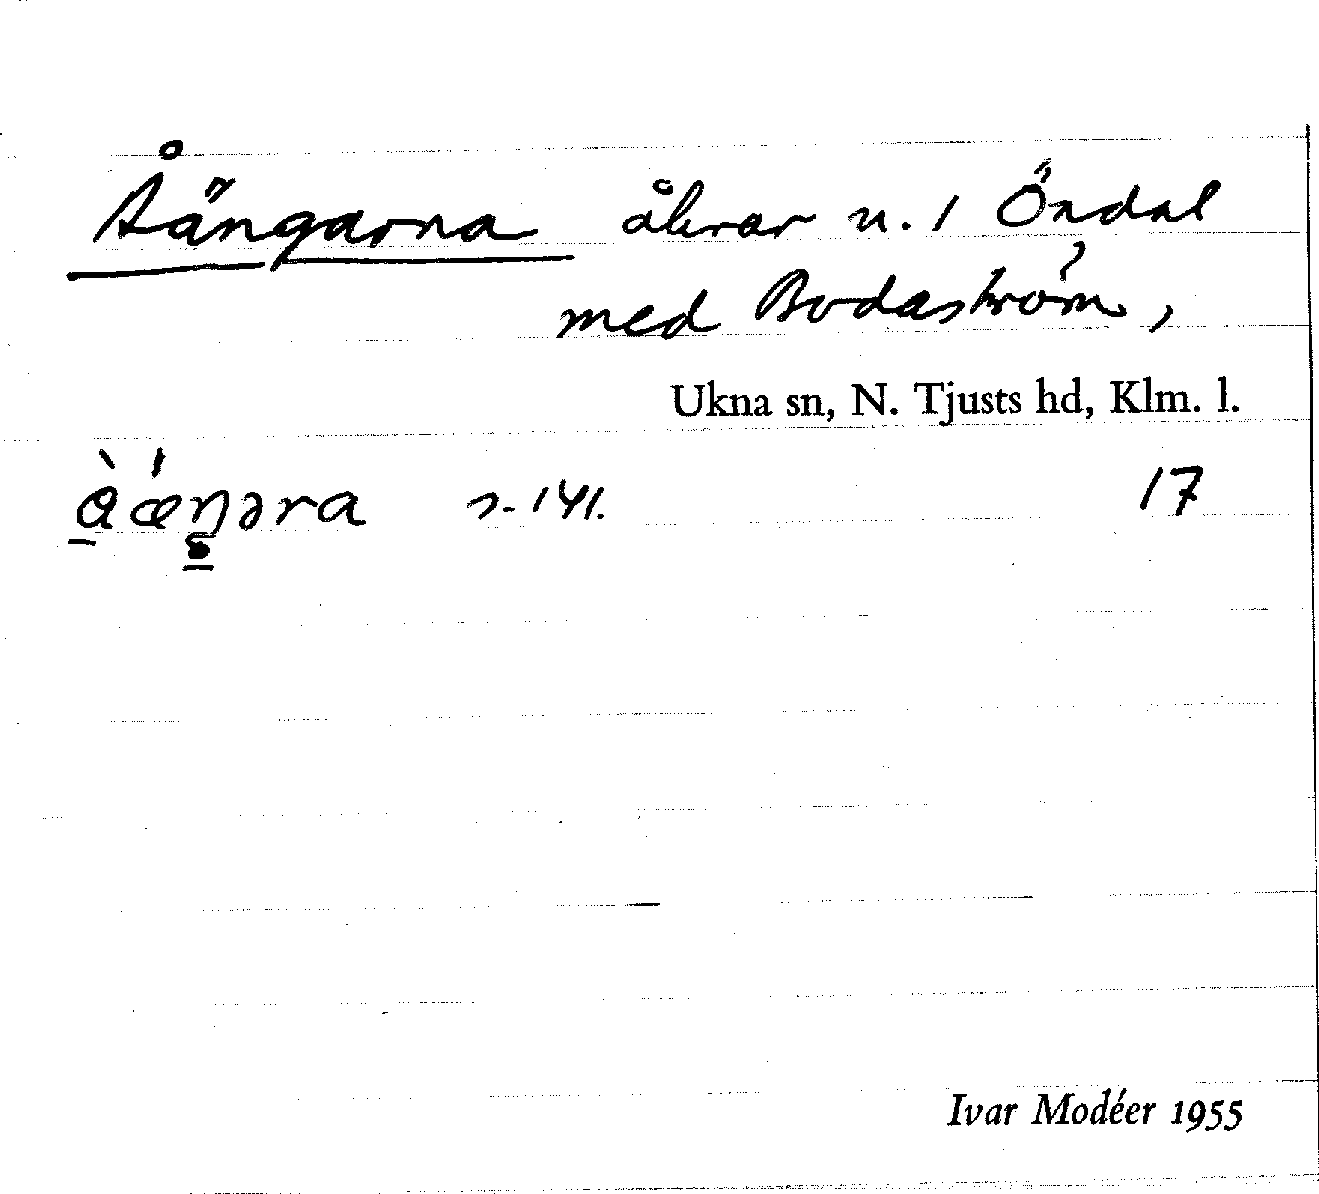 Åängarna åkrar n. 1 Öndal
med Bodaström,
Ukna sn, N. Tjusts hd, Klm. l.
a᷆æ᷇ŋəra s. 141. 17
Ivar Modéer 1955